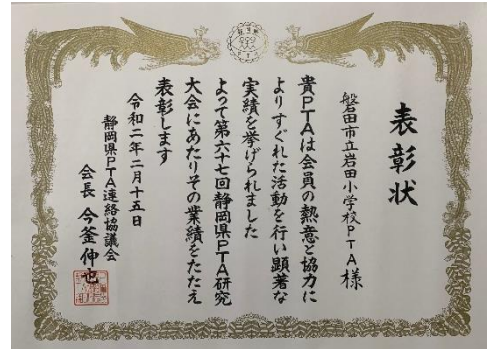 表彰状
磐田市立岩田小学校PTA様
貴PTAは会員の熱意と協力に
よりすぐれた活動を行い顕著な
実績を挙げられました
よって第六十七回静岡県PTA研究
大会にあたりその業績をたたえ
表彰します
令和二年二月十五日
静岡県PTA連絡協議会
会長 今釜伸也